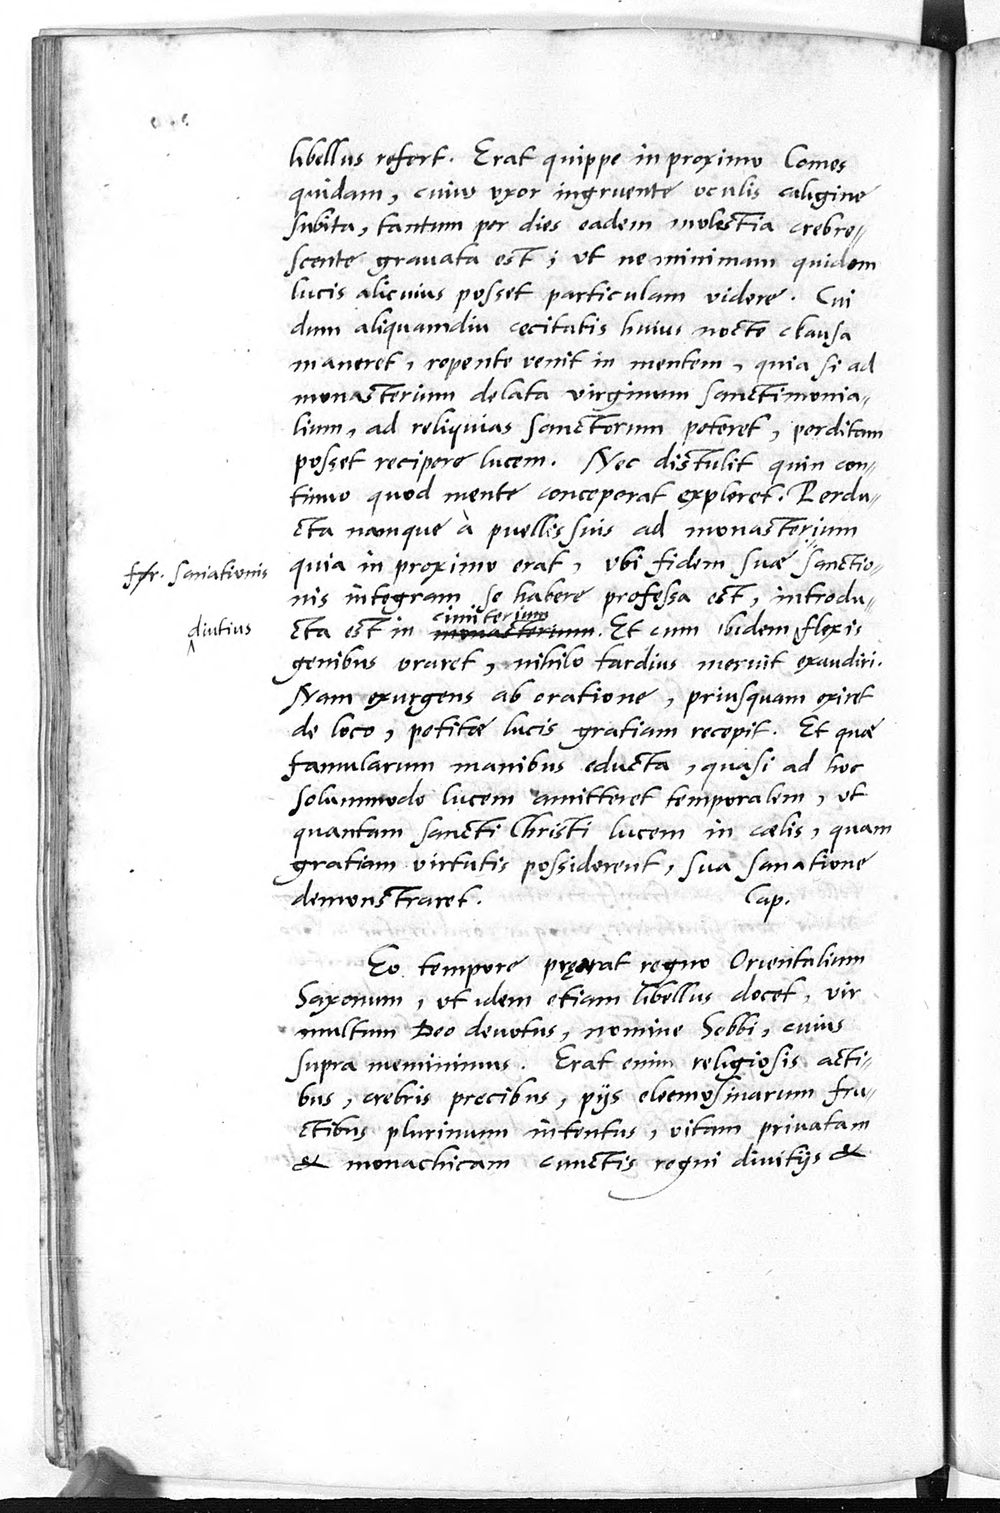 libellus refert. Erat quippe in proximo Comes
quidam, cuius uxor ingruente oculis caligine
subita, tantum per dies eadem molestia crebre„
scente grauata est; ut ne minimam quidem
lucis alicuius posset particulam videre. Cui
dum aliquamdiu cecitatis huius nocte clausa
maneret, repente venit in mentem, quia si ad
monasterium delata virginum sanctimonia„
lium, ad reliquias sanctorum peteret, perditam
posset recipere lucem. Nec distulit quin con„
tinuo quod mente conceperat expleret. Perdu„
cta namque à puellis suis ad monasterium
quia in proximo erat, ubi fidem suæ sanctio„
fr. sanationis
nis integram se habere professa est, introdu„
cimiterium
cta est in monasterium. Et cum ibidem flexis
diutius
genibus oraret, nihilo tardius meruit exaudiri.
Nam exurgens ab oratione, priusquam exiret
de loco, petitæ lucis gratiam recepit. Et quæ
famularum manibus educta, quasi ad hoc
solummodo lucem amitteret temporalem, ut
quantam sancti Christi lucem in cælis, quam
gratiam virtutis possiderent, sua sanatione
demonstraret. Cap.
Eo tempore pręerat regno Orientalium
Saxonum, ut idem etiam libellus docet, vir
multum Deo deuotus, nomine Sebbi, cuius
supra meminimus. Erat enim religiosis acti„
bus, crebris precibus, pijs eleemosinarum fru„
ctibus plurimum intentus, vitam priuatam
& monachicam cunctis regni diuitijs &